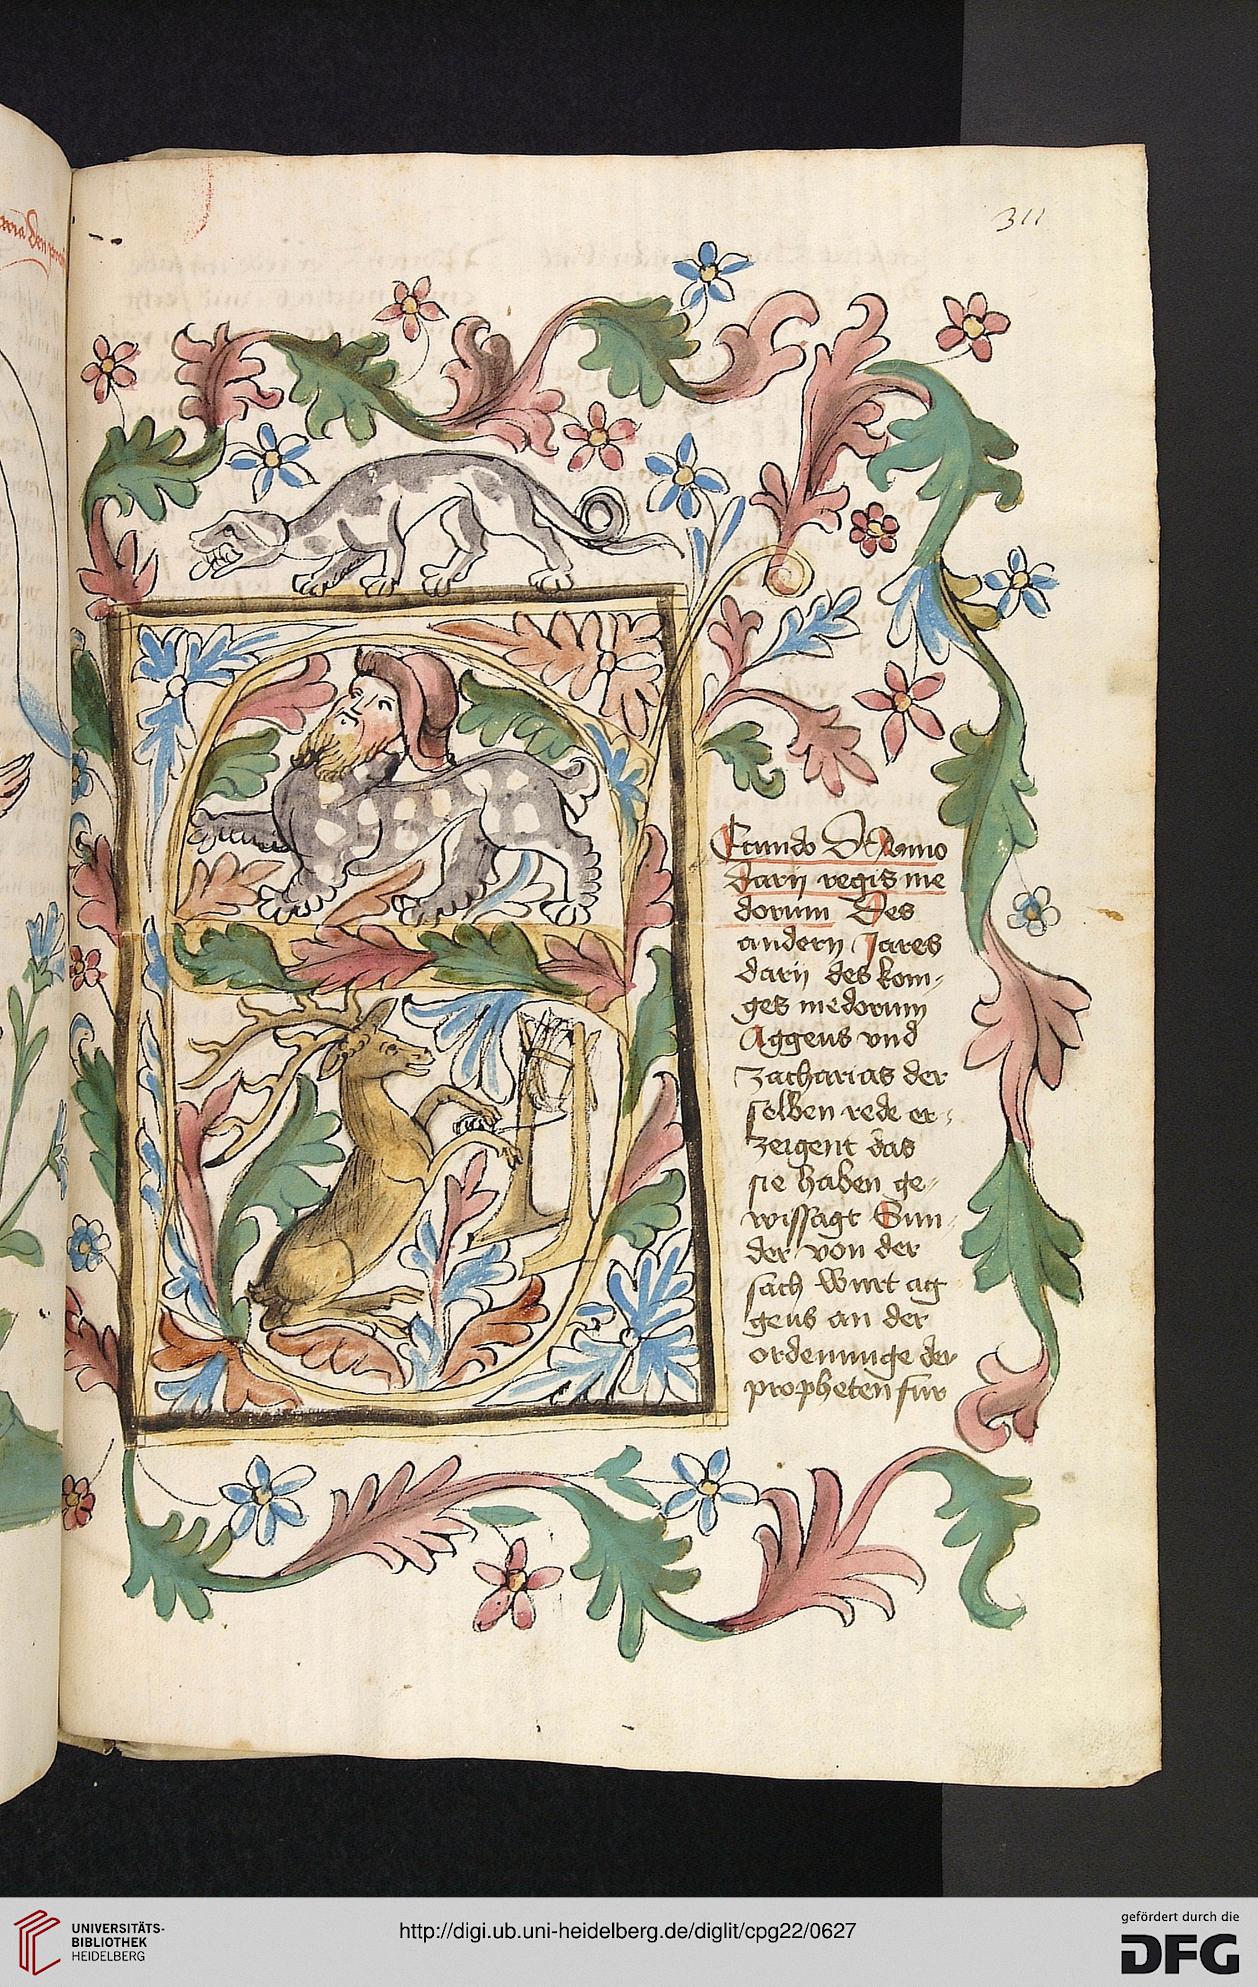 311
Ecundo D Anno
darij regis me
dorum Des
andern Jares
darij des kom-
ges medorum
Aggeus vnd
zacharias der
selben rede er-
zeigent das
sie haben ge-
wissagt Sun-
der von der
sach wurt ag
geus an der
ordenunge der
propheten fur
UNIVERSITÄTS-
BIBLIOTHEK
HEIDELBERG
http://digi.ub.uni-heidelberg.de/diglit/cpg22/0627
gefördert durch die
DFG